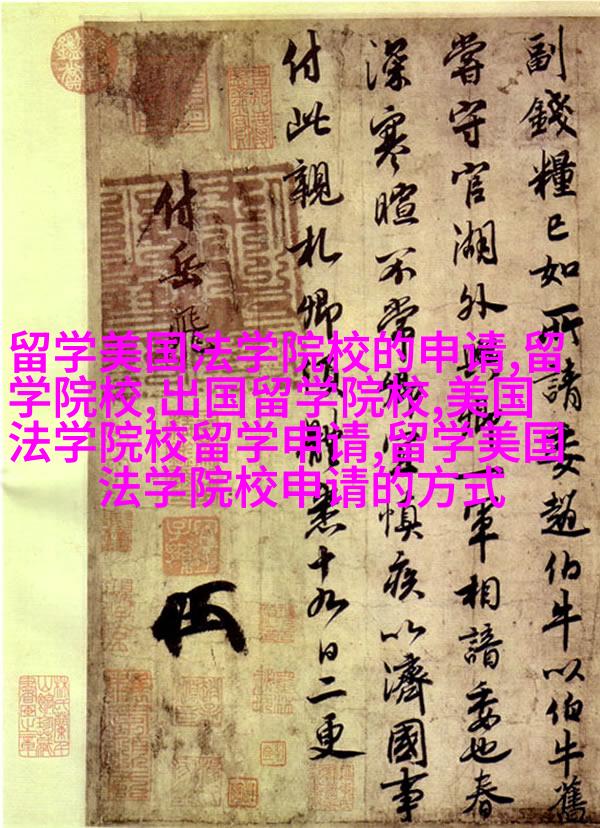 留学美国法学院校的申请,留
学院校,出国留学院校,美国
法学院校留学申请,留学美国
法学院校申请的方式
副錢糧已如所請委趙伯牛以伯牛舊
嘗守官湖外與卿一軍相諳委也春
深寒暄不常卿宜慎疾以濟國事
付此親札卿須體悉十九日二更
付岳飛